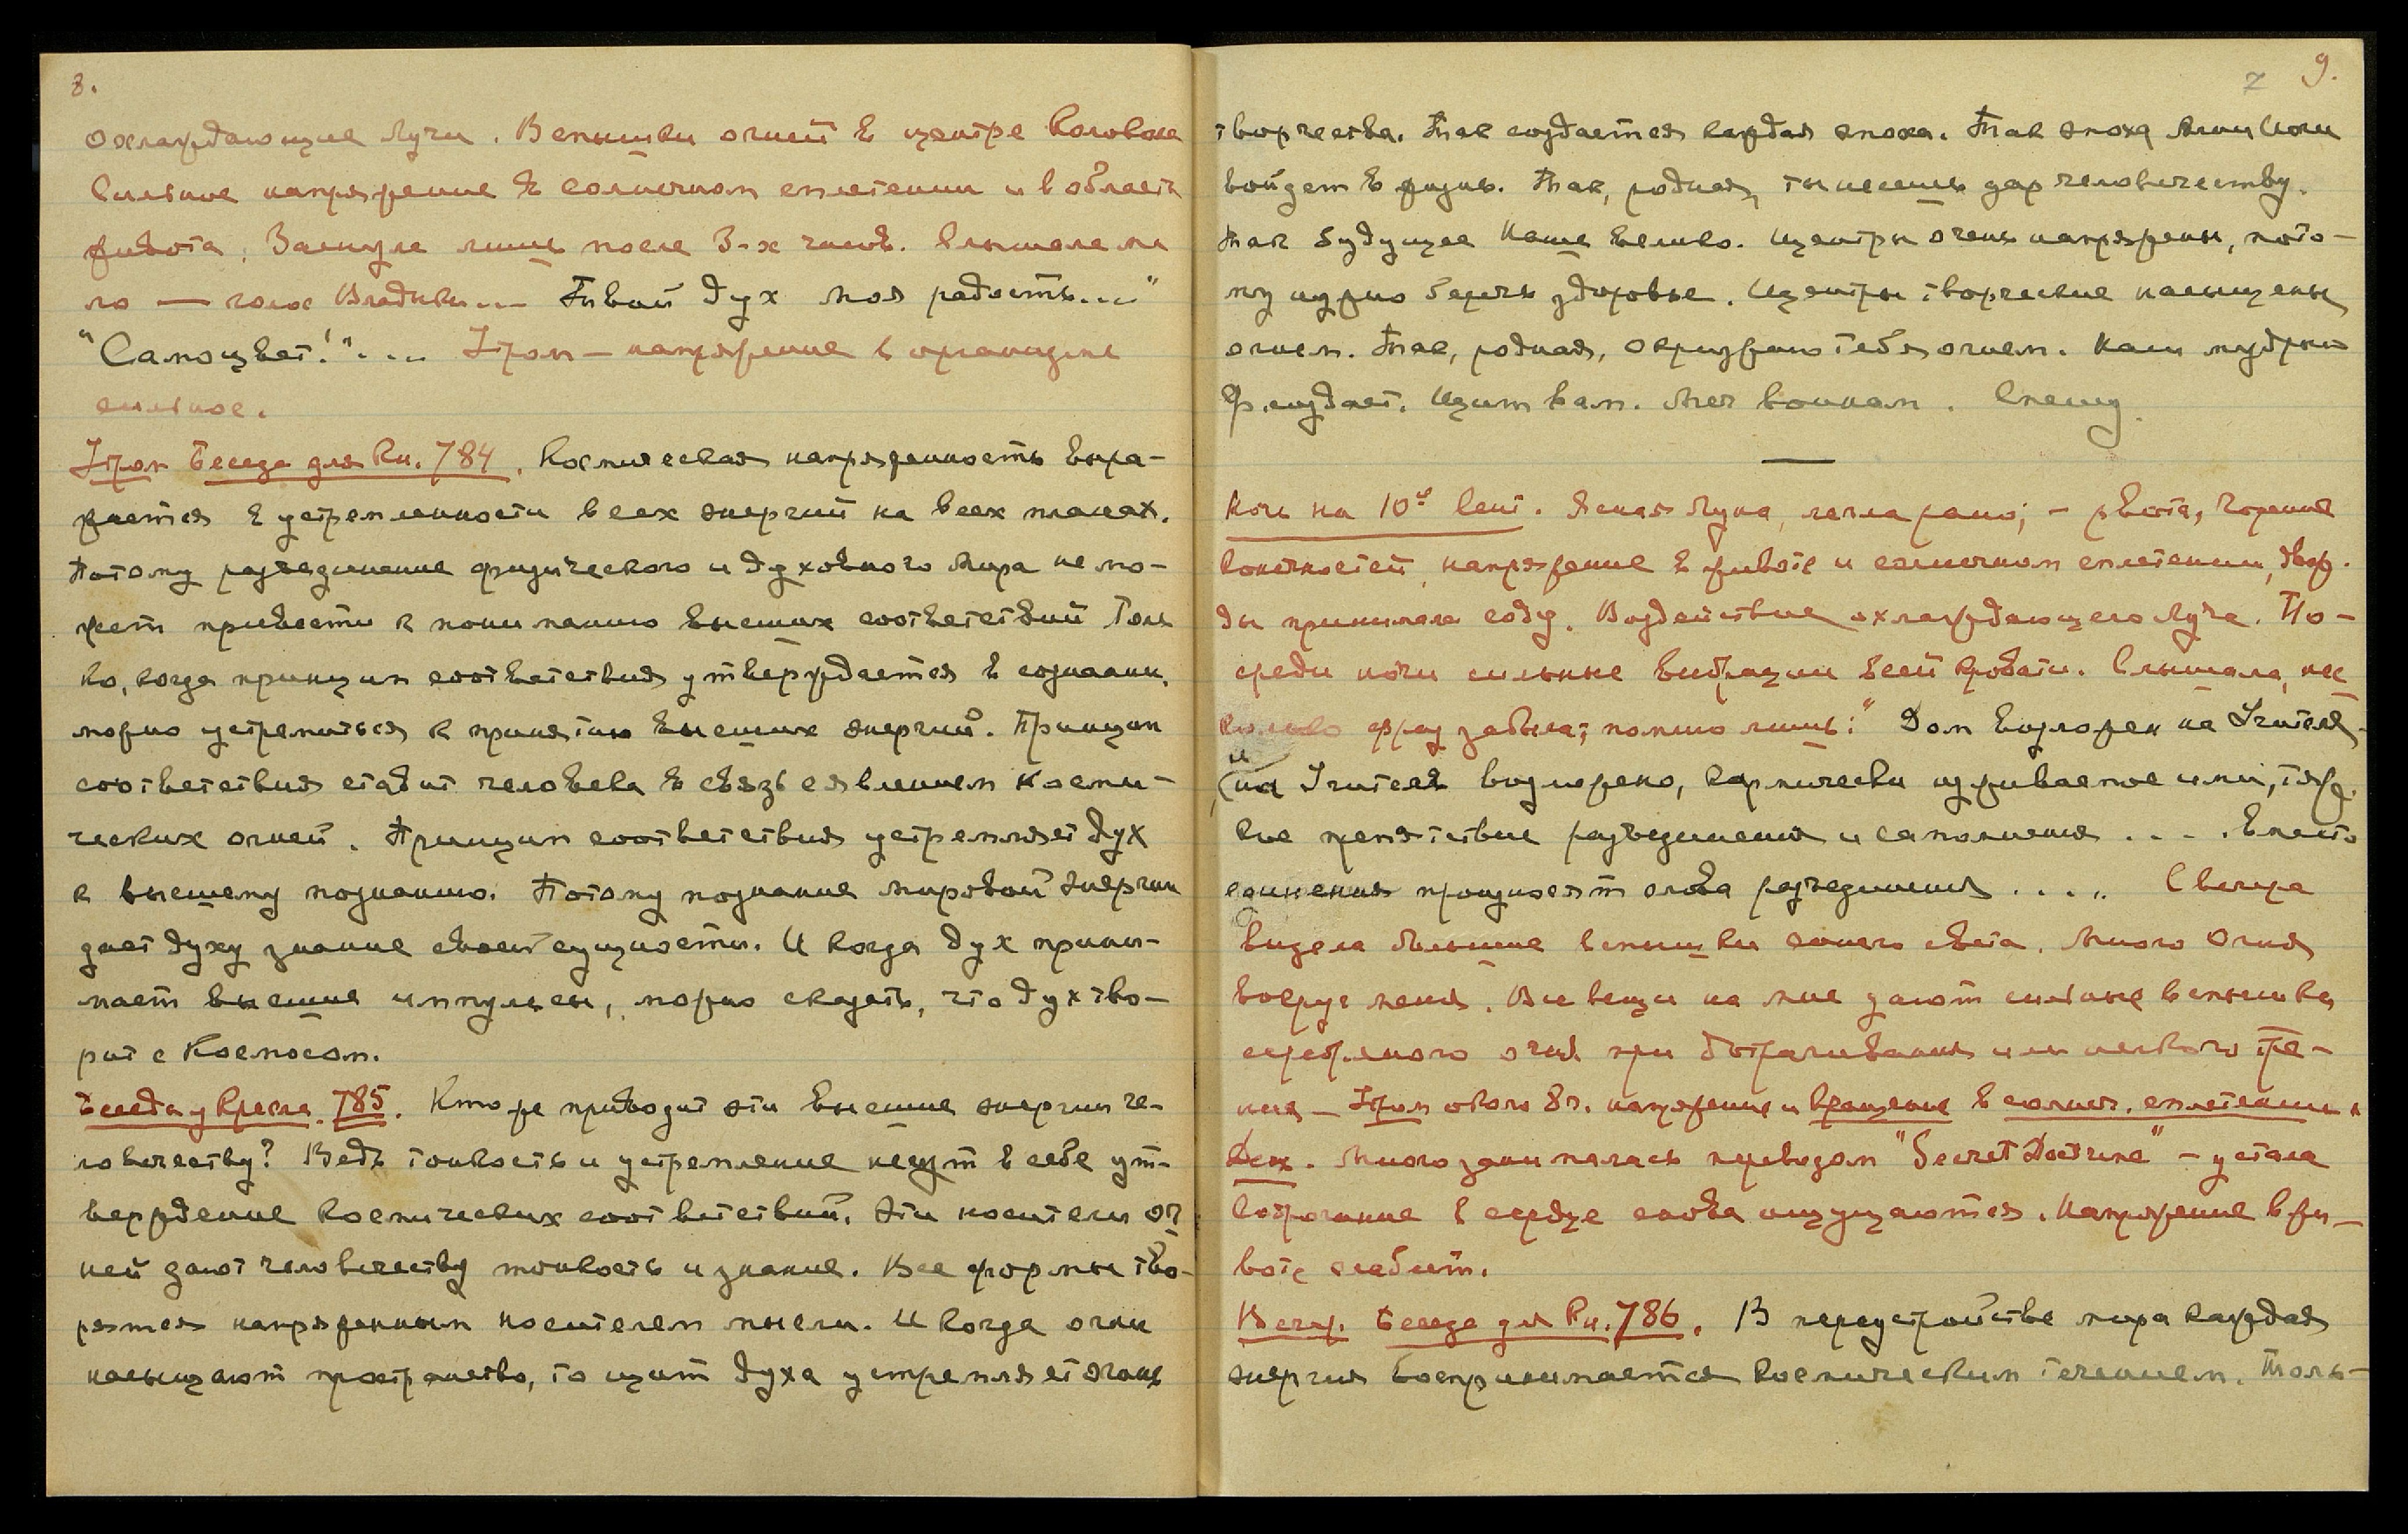 8.
охлаждающие лучи. Вспышки огней в центре колокола
сильное напряжение в солнечном сплетении и в области
живота. Заснула лишь после 3-х часов. Слышала ма-
ло — голос Владыки... Твой дух моя радость..."
"Самоцвет!".... Утром — напряжение в организме
сильное.
Утром Беседа для Кн. 784. Космическая напряженность выра-
жается в устремленности всех энергий на всех планах.
Потому разъединение физического и духовного мира не мо-
жет привести к пониманию высших соответствий Толь
ко, когда принцип соответствия утверждается в сознании,
можно устремиться к принятию высших энергий. Принцип
соответствия ставит человека в связь с явлением Косми-
ческих огней. Принцип соответствия устремляет дух
к высшему познанию. Потому познание мировой энергии
дает духу знание своей сущности. И когда дух прини-
мает высшие импульсы, можно сказать, что дух тво-
рит с Космосом.
Беседа у Кресла. 785. Кто же приводит эти высшие энергии че-
ловечеству? Ведь тонкость и устремление несут в себе ут-
верждение космических соответствий. Эти носители ог
ней дают человечеству тонкость и знание. Все формы тво-
рятся напряженным носителем мысли. И когда огни
насыщают пространство, то щит духа устремляет огонь
7 9.
творчества. Так создается каждая эпоха. Так эпоха Агни Йоги
войдет в жизнь. Так, родная, ты несешь дар человечеству.
Так будущее Наше велико. Центры очень напряжены, пото-
му нужно беречь здоровье. Центры творческие насыщены
огнем. Так, родная, окружаю тебя огнем. Наш мудрый
Ф. создает. Щит вам. Меч воинам. Спешу.
Ночь на 10ое Сент. Ясная Луна, легла рано; — рвота, горение
конечностей, напряжение в животе и солнечном сплетении, дваж.
ды принимала соду. Воздействие охлаждающего Луча. По-
среди ночи сильные вибрации всей кровати. Слышала, нес
колько фраз забыла; помню лишь: "Дом возложен на Учителя
на Учителя возложено, кармически изживаемое ими, тяж.
кое препятствие разъединения и самомнения .... Вместо
единения произносят слова разъединения .... С вечера
видела большие вспышки синего света. Много Огня
вокруг меня. Все вещи на мне дают сильные вспышки
серебряного огня при дотрагивании или легкого тре-
ния — Утром около 8ч. напряжение и вращение в солнеч. сплетении.
Днем. Много занималась переводом "Secret Doctrine" — устала
Содрогание в сердце снова ощущаются. Напряжение в жи-
воте слабит.
Вечер. Беседа для Кн. 786. В переустройстве мира каждая
энергия воспринимается космическим течением. Толь-